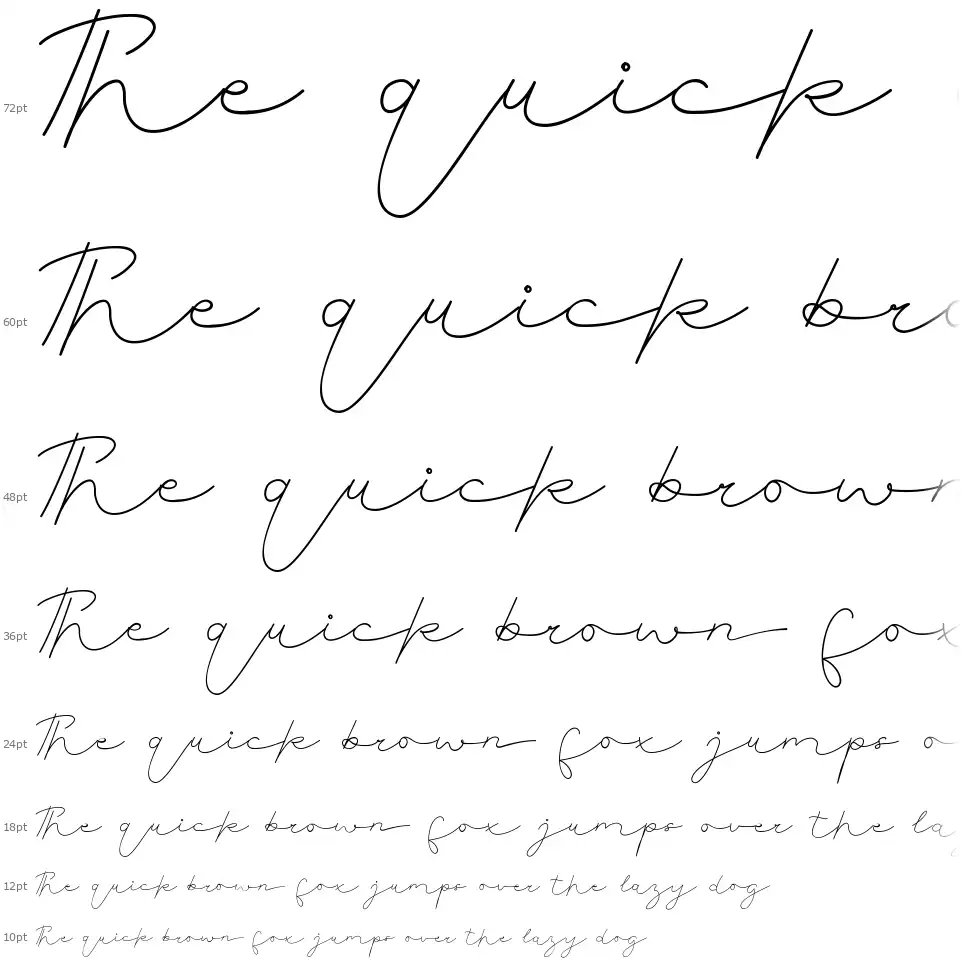 72pt The quick
60pt The quick bro
48pt The quick brown
36pt The quick brown fox
24pt The quick brown fox jumps o
18pt The quick brown fox jumps over the la
12pt The quick brown fox jumps over the lazy dog
10pt The quick brown fox jumps over the lazy dog